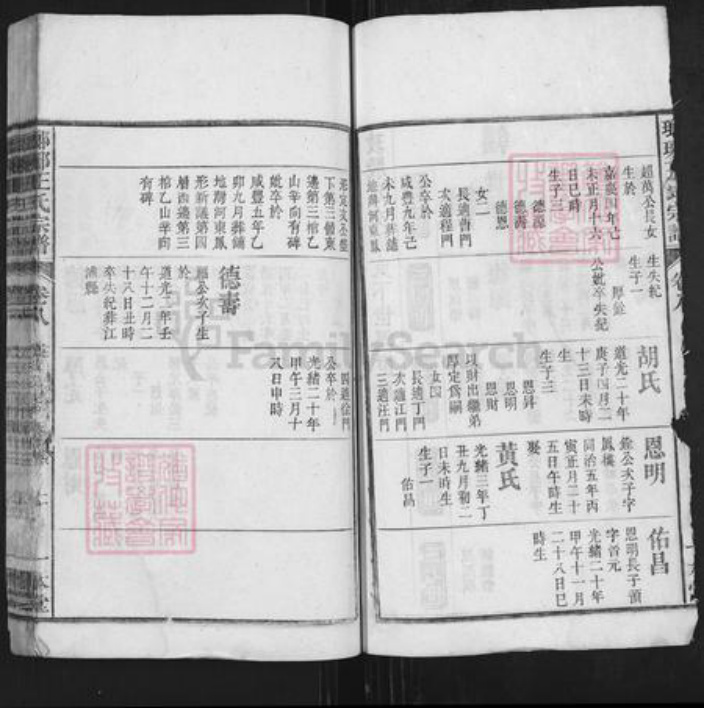 瑯琊王氏宗譜
卷八
超萬公長女
生於
嘉慶四年己
未正月十六
日巳時
生子三
德深
德壽
德恩
女二
長適曹門
次適程門
公卒於
咸豐九年己
未九月葬鋪
地灣河東鳳
生失紀
生子一
厚銓
公妣卒失紀
胡氏
道光二十年
庚子四月二
十三日未時
生
生子三
恩昇
恩明
恩財
以財出繼弟
厚定為嗣
女四
長適丁門
次適江門
三適汪門
恩明
銓公次子字
鳳樓
同治五年丙
寅正月二十
五日午時生
娶
黃氏
光緒三年丁
丑九月初二
日未時生
生子一
佑昌
佑昌
恩明長子預
字首元
光緒二十年
甲午十一月
二十八日巳
時生
下第三個東
邊第三棺乙
山辛向有碑
妣卒於
咸豐五年乙
卯九月葬鋪
地灣河東鳳
形新議第四
層西邊第三
棺乙山辛向
有碑
德壽
福公次子生
於
道光二年壬
午十二月二
十八日丑時
卒失紀葬江
浦縣
四適徐門
公卒於
光緒二十年
甲午三月十
八日申時
瑯琊王氏宗譜
卷八
一本堂
FamilySearch